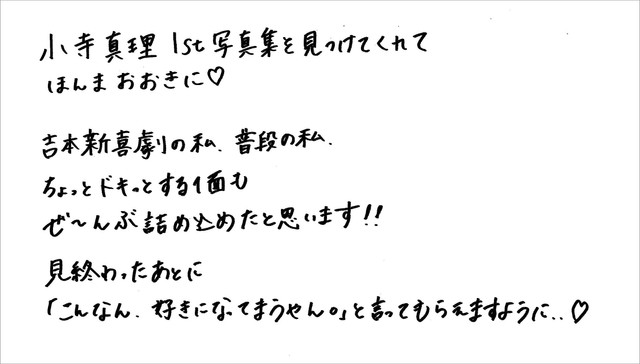 小寺真理 1st写真集を見つけてくれて
ほんまおおきに♡
吉本新喜劇の私、普段の私、
ちょっとドキッとする1面も
ぜ〜んぶ詰め込めたと思います!!
見終わったあとに
「こんなん、好きになってまうやん。」と言ってもらえますように..♡